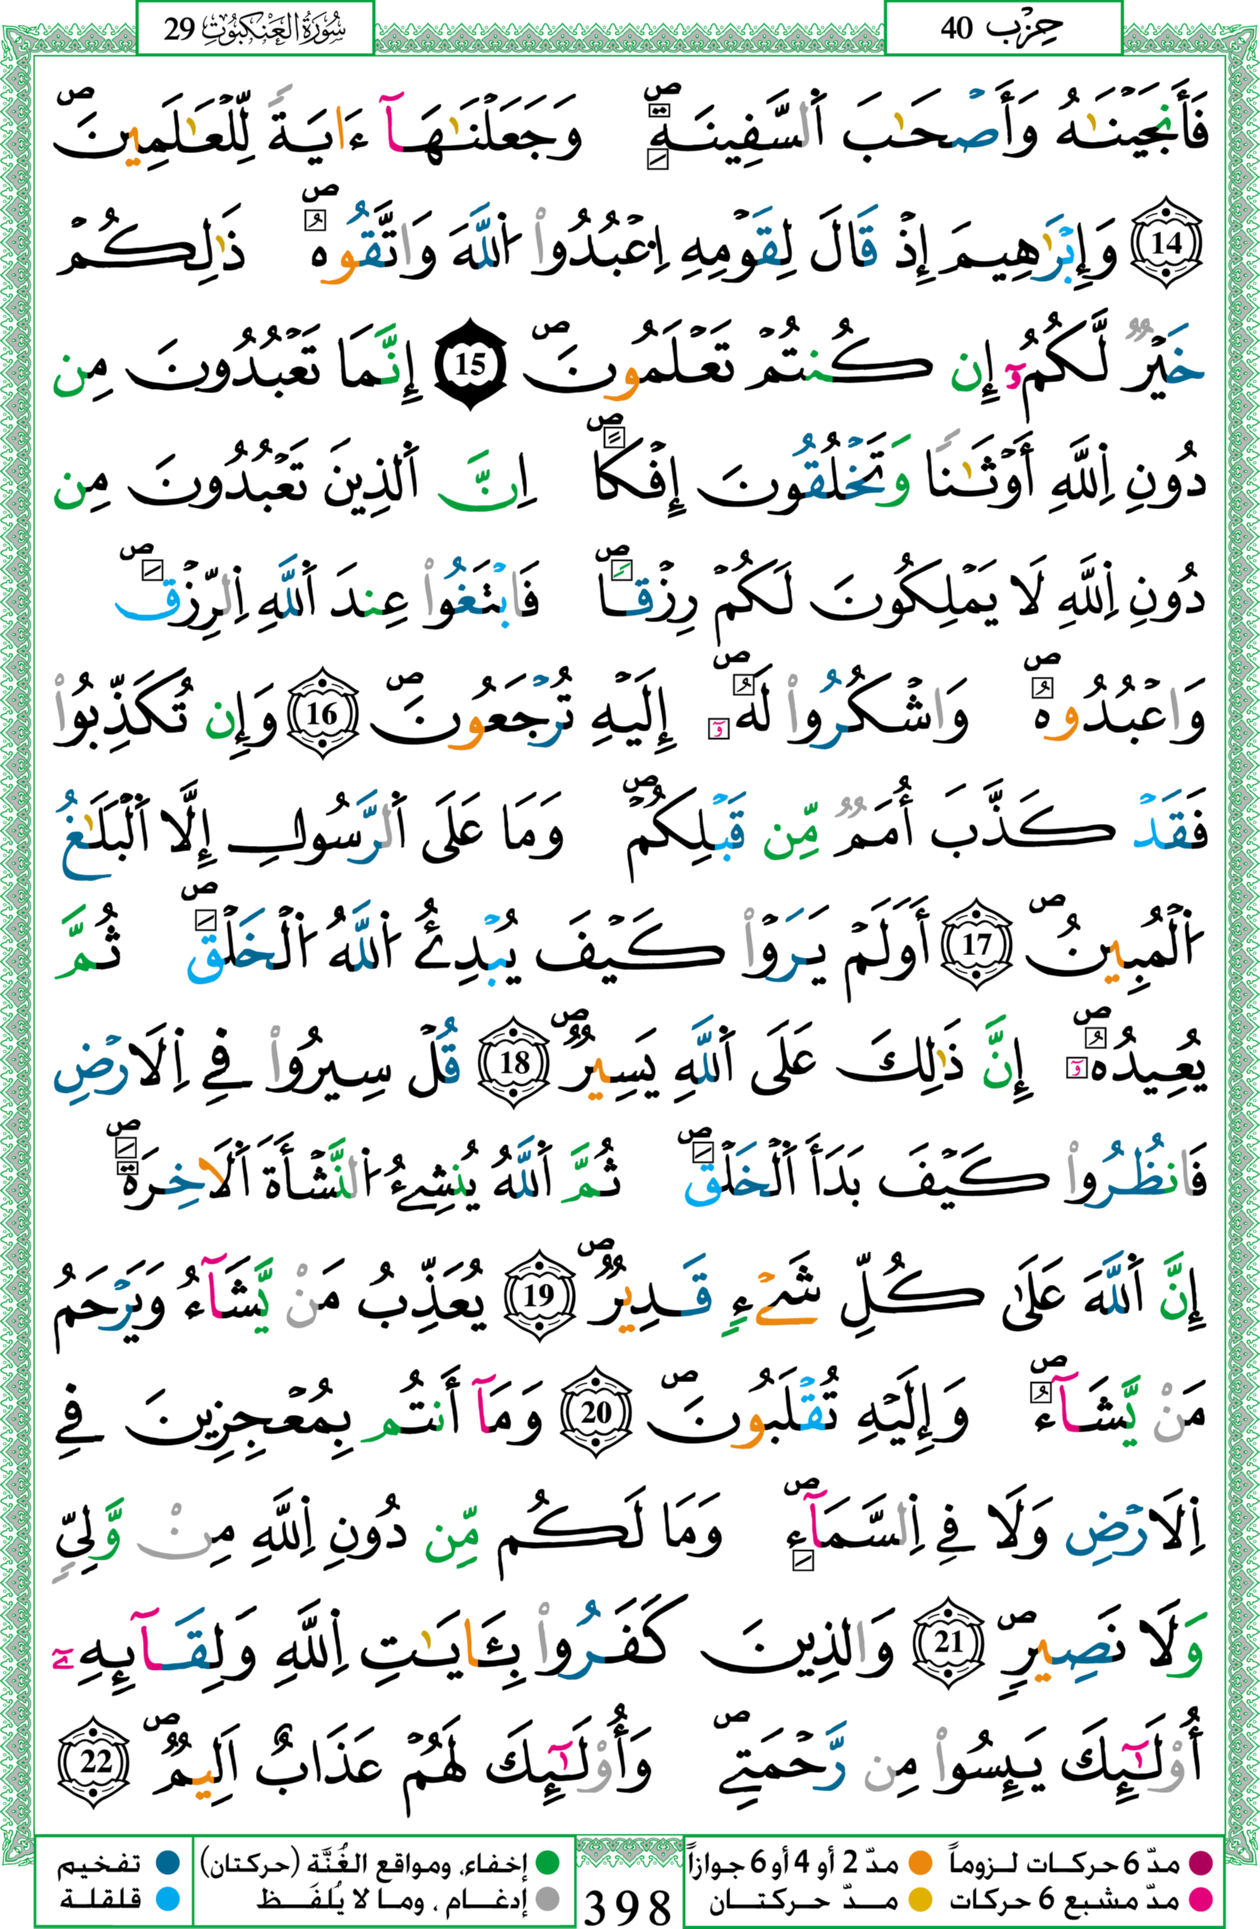 حِزْب 40
سُورَةُ الْعَنكَبُوتِ 29
فَأَنجَيْنَٰهُ وَأَصْحَٰبَ اَ۬لسَّفِينَةِۖ وَجَعَلْنَٰهَآ ءَايَةً لِّلْعَٰلَمِينَۖ
14 وَإِبْرَٰهِيمَ إِذْ قَالَ لِقَوْمِهِ اِ۟عْبُدُواْ اُ۬للَّهَ وَاتَّقُوهُۖ ذَٰلِكُمْ
خَيْرٌ لَّكُمُۥٓ إِن كُنتُمْ تَعْلَمُونَۖ 15 إِنَّمَا تَعْبُدُونَ مِن
دُونِ اِ۬للَّهِ أَوْثَٰناً وَتَخْلُقُونَ إِفْكاًۖ اِنَّ اَ۬لذِينَ تَعْبُدُونَ مِن
دُونِ اِ۬للَّهِ لَا يَمْلِكُونَ لَكُمْ رِزْقاًۖ فَابْتَغُواْ عِندَ اَ۬للَّهِ اِ۬لرِّزْقَۖ
وَاعْبُدُوهُۖ وَاشْكُرُواْ لَهُۥٓۖ إِلَيْهِ تُرْجَعُونَۖ 16 وَإِن تُكَذِّبُواْ
فَقَدْ كَذَّبَ أُمَمٌ مِّن قَبْلِكُمْۖ وَمَا عَلَى اَ۬لرَّسُولِ إِلَّا اَ۬لْبَلَٰغُ
اُ۬لْمُبِينُۖ 17 أَوَلَمْ يَرَوْاْ كَيْفَ يُبْدِئُ اُ۬للَّهُ اُ۬لْخَلْقَۖ ثُمَّ
يُعِيدُهُۥٓۖ إِنَّ ذَٰلِكَ عَلَى اَ۬للَّهِ يَسِيرٌۖ 18 قُلْ سِيرُواْ فِے اِ۬لَارْضِ
فَانظُرُواْ كَيْفَ بَدَأَ اَ۬لْخَلْقَۖ ثُمَّ اَ۬للَّهُ يُنشِۓُ اُ۬لنَّشْأَةَ اَ۬لَاخِرَةَۖ
إِنَّ اَ۬للَّهَ عَلَىٰ كُلِّ شَےْءٍ قَدِيرٌۖ 19 يُعَذِّبُ مَنْ يَّشَآءُ وَيَرْحَمُ
مَنْ يَّشَآءُۖ وَإِلَيْهِ تُقْلَبُونَۖ 20 وَمَآ أَنتُم بِمُعْجِزِينَ فِے
اِ۬لَارْضِ وَلَا فِے اِ۬لسَّمَآءِۖ وَمَا لَكُم مِّن دُونِ اِ۬للَّهِ مِنْ وَّلِيٍّ
وَلَا نَصِيرٍۖ 21 وَالذِينَ كَفَرُواْ بِـَٔايَٰتِ اِ۬للَّهِ وَلِقَآئِهِۦٓ
أُوْلَٰٓئِكَ يَئِسُواْ مِن رَّحْمَتِےۖ وَأُوْلَٰٓئِكَ لَهُمْ عَذَابٌ اَلِيمٌۖ 22
مدّ 6 حركات لزوماً مدّ 2 أو 4 أو 6 جوازاً
مدّ مشبع 6 حركات مدّ حركتان
398
إخفاء، ومواقع الغُنَّة (حركتان) تفخيم
إدغام ، وما لا يُلفَظ قلقلة